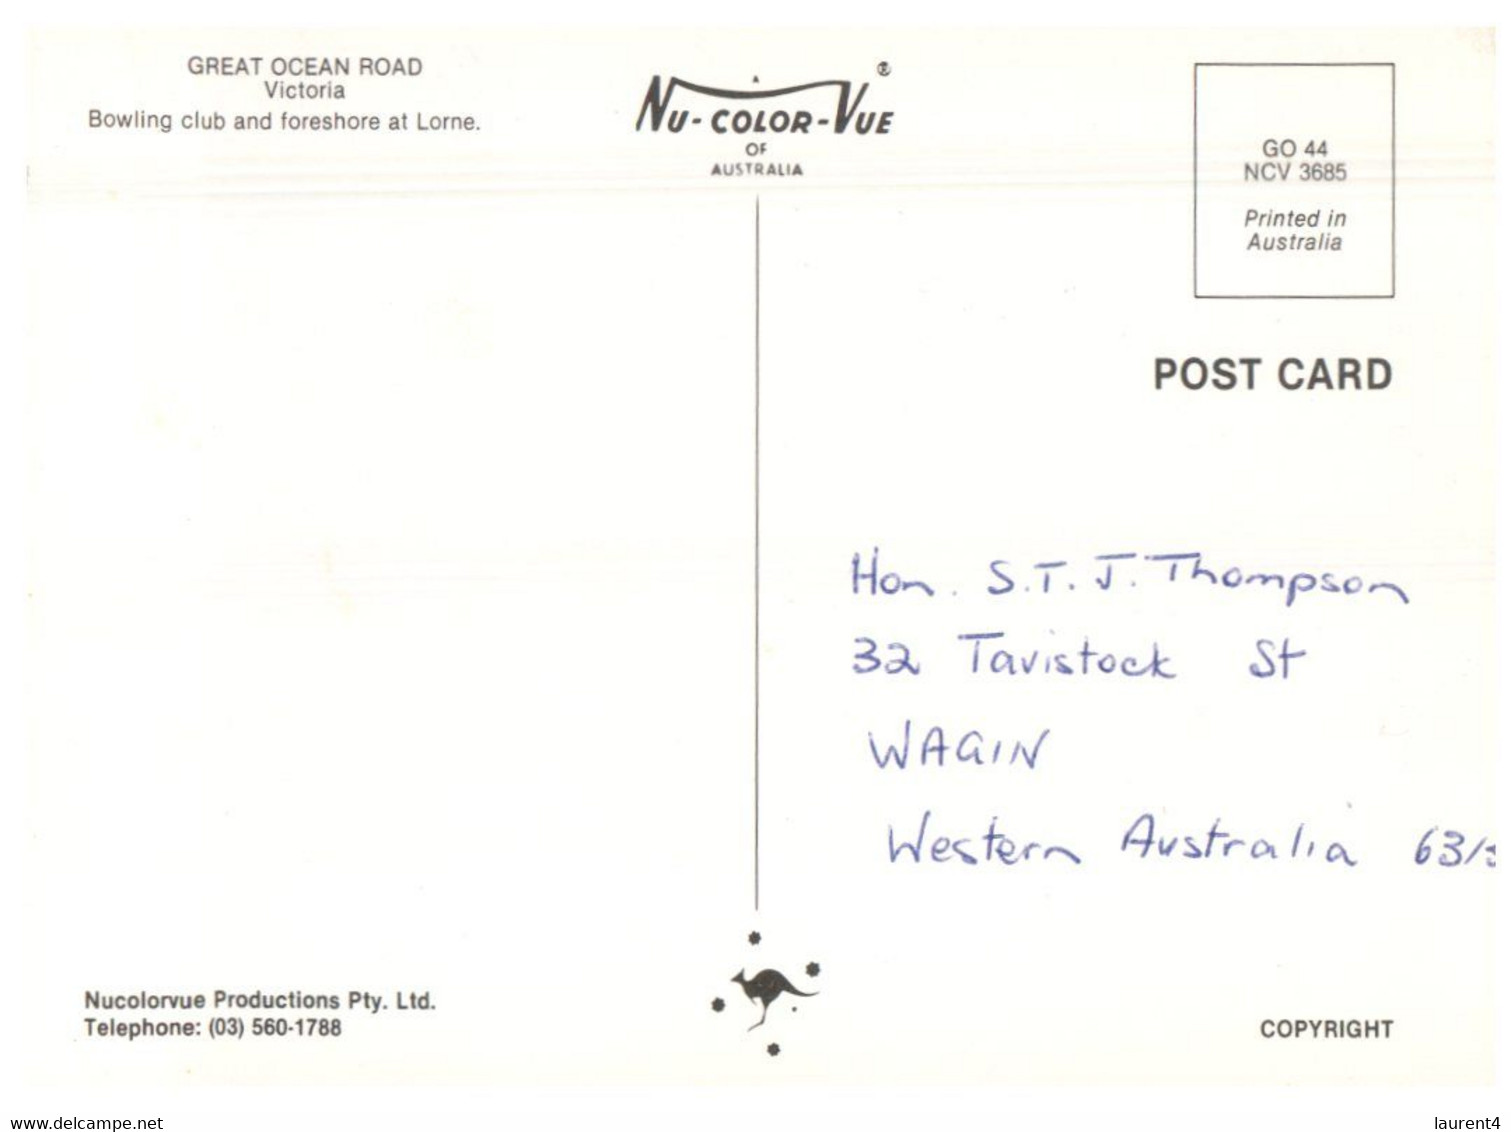 GREAT OCEAN ROAD
Victoria
Bowling club and foreshore at Lorne.
NU-COLOR-VUE ®
OF
AUSTRALIA
GO 44
NCV 3685
Printed in
Australia
POST CARD
Hon. S.T.J. Thompson
32 Tavistock St
WAGIN
Western Australia
Nucolorvue Productions Pty. Ltd.
Telephone: (03) 560-1788
COPYRIGHT
www.delcampe.net
laurent4